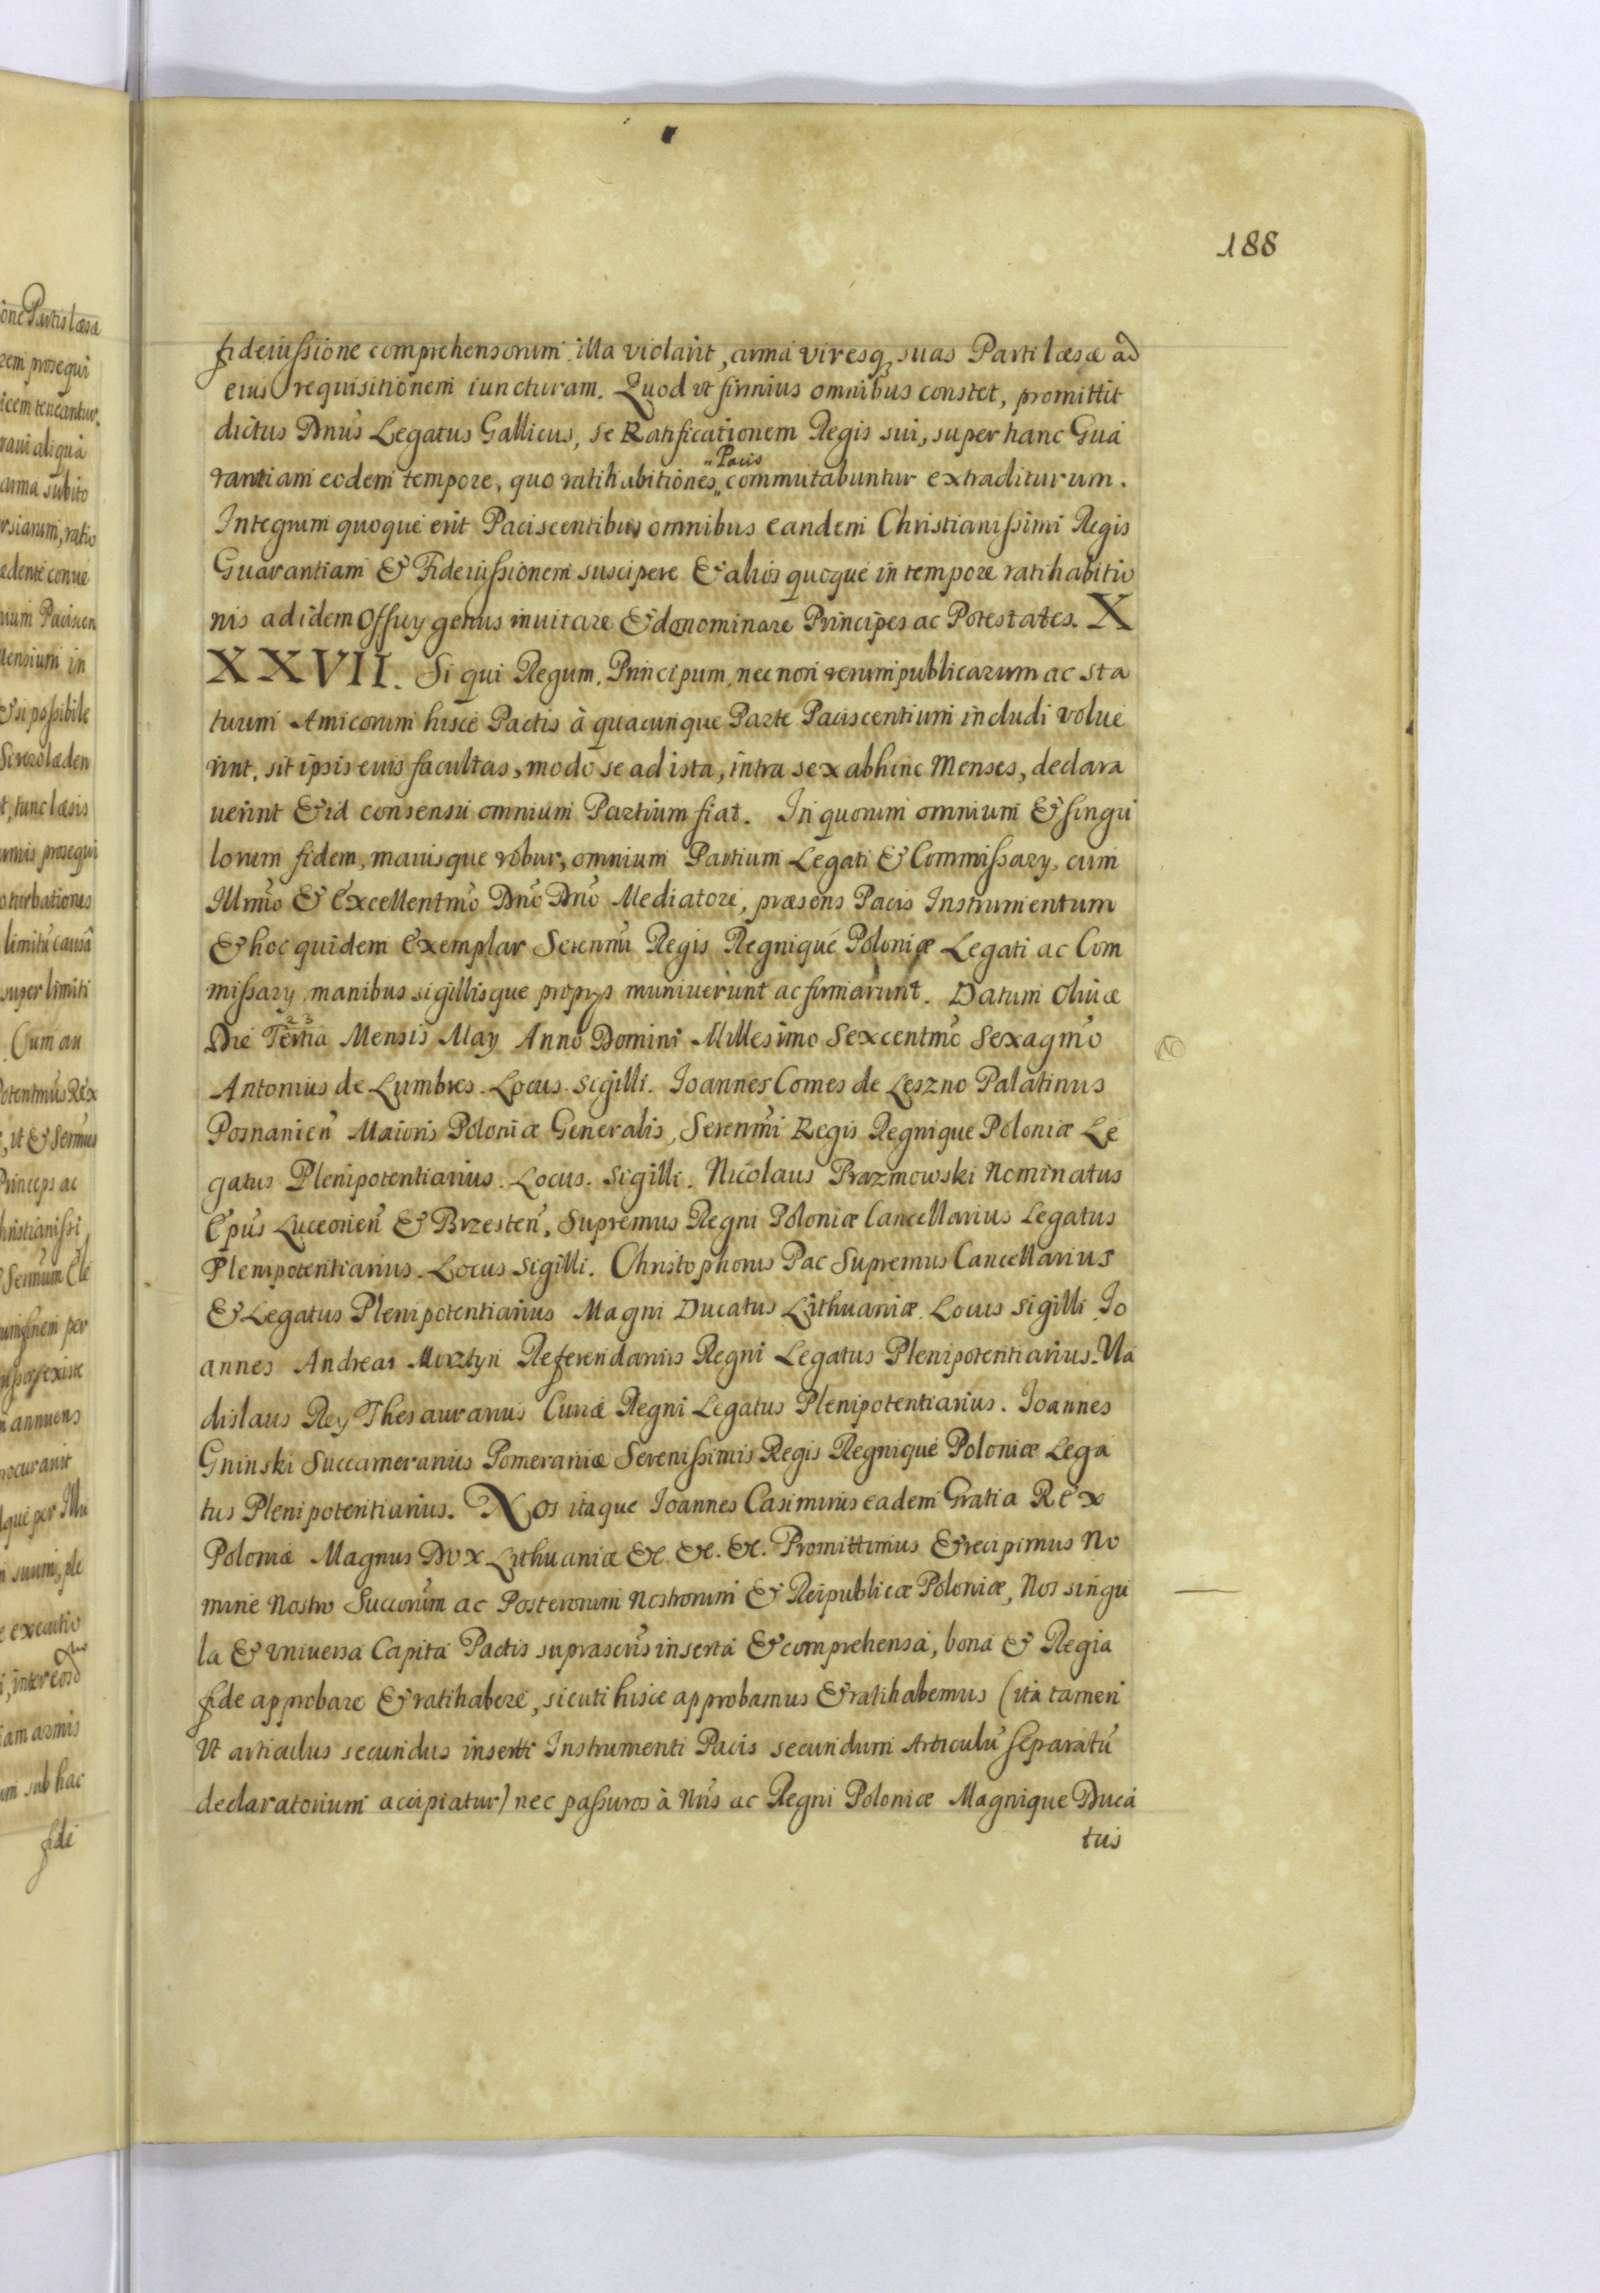 188
fideiussione comprehensorum illa violarit, arma viresq; suas Parti læsæ ad
eius requisitionem iuncturam. Quod vt firmius omnibus constet, promittit
dictus Dnus Legatus Gallicus, se Ratificationem Regis sui, super hanc Gua
rantiam eodem tempore, quo ratihabitiones „Pacis„ commutabuntur extraditurum.
Integrum quoque erit Paciscentibus omnibus eandem Christianissimi Regis
Guarantiam & Fideiussionem suscipere & alios quoque in tempore ratihabitio
nis ad idem Officij genus inuitare & denominare Principes ac Potestates. X
XXVII. Si qui Regum, Principum, nec non rerumpublicarum ac sta
tuum Amicorum hisce Pactis à quacunque Parte Paciscentium includi volue
rint, sit ipsis euis facultas, modo se ad ista, intra sex abhinc Menses, declara
uerint & id consensu omnium Partium fiat. In quorum omnium & singu
lorum fidem, maiusque robur, omnium Partium Legati & Commissary, cum
Illmo & Excellentmo Dno Dno Mediatore, præsens Pacis Instrumentum
& hoc quidem Exemplar Serenmi Regis Regnique Poloniæ Legati ac Com
missary manibus sigillisque proprys muniuerunt ac firmarunt. Datum Oliuæ
23
Die Tertia Mensis May Anno Domini Millesimo Sexcentmo Sexagmo
Antonius de Lumbres. Locus sigilli. Ioannes Comes de Leszno Palatinus
Posnanien Maioris Poloniæ Generalis, Serenmi Regis Regnique Poloniæ Le
gatus Plenipotentiarius. Locus. Sigilli. Nicolaus Prazmowski Nominatus
Epus Luceorien & Brzesten, Supremus Regni Poloniæ Cancellarius Legatus
Plenipotentiarius. Locus Sigilli. Christophorus Pac Supremus Cancellarius
& Legatus Plenipotentiarius Magni Ducatus Lithuaniæ. Locus sigilli. Io
annes Andreas Morztyn Referendarius Regni Legatus Plenipotentiarius. Vla
dislaus Rey Thesaurarius Curiæ Regni Legatus Plenipotentiarius. Ioannes
Gninski Succamerarius Pomeraniæ Serenissimis Regis Regnique Poloniæ Lega
tus Plenipotentiarius. Nos itaque Ioannes Casimirus eadem Gratia Rex
Poloniæ Magnus Dux Lithuaniæ &c. &c. &c. Promittimus & recipimus No
mine Nostro Succorum ac Posterorum Nostrorum & Reipublicæ Poloniæ, Nos singu
la & vniuersa Capita Pactis suprascris inserta & comprehensa, bona & Regia
fide approbare & ratihabere, sicuti hisce approbamus & ratihabemus (ita tamen
Vt articulus secundus inserti Instrumenti Pacis secundum Articulu separatu
declaratorium accipiatur) nec passuros à Nris ac Regni Poloniæ Magnique Duca
tus